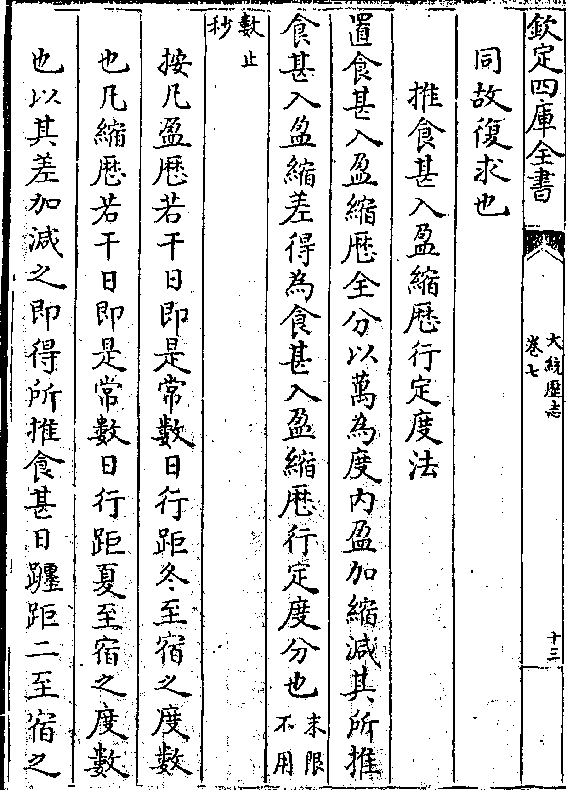 欽定四庫全書
大統歴志
卷七
十三
同故復求也
推食甚入盈縮厯行定度法
置食甚入盈縮厯全分以萬為度内盈加縮減其所推
食甚入盈縮差得為食甚入盈縮厯行定度分也末限不用
數止秒
按凡盈厯若干日即是常數日行距冬至宿之度數
也凡縮厯若干日即是常數日行距夏至宿之度數
也以其差加減之即得所推食甚日躔距二至宿之